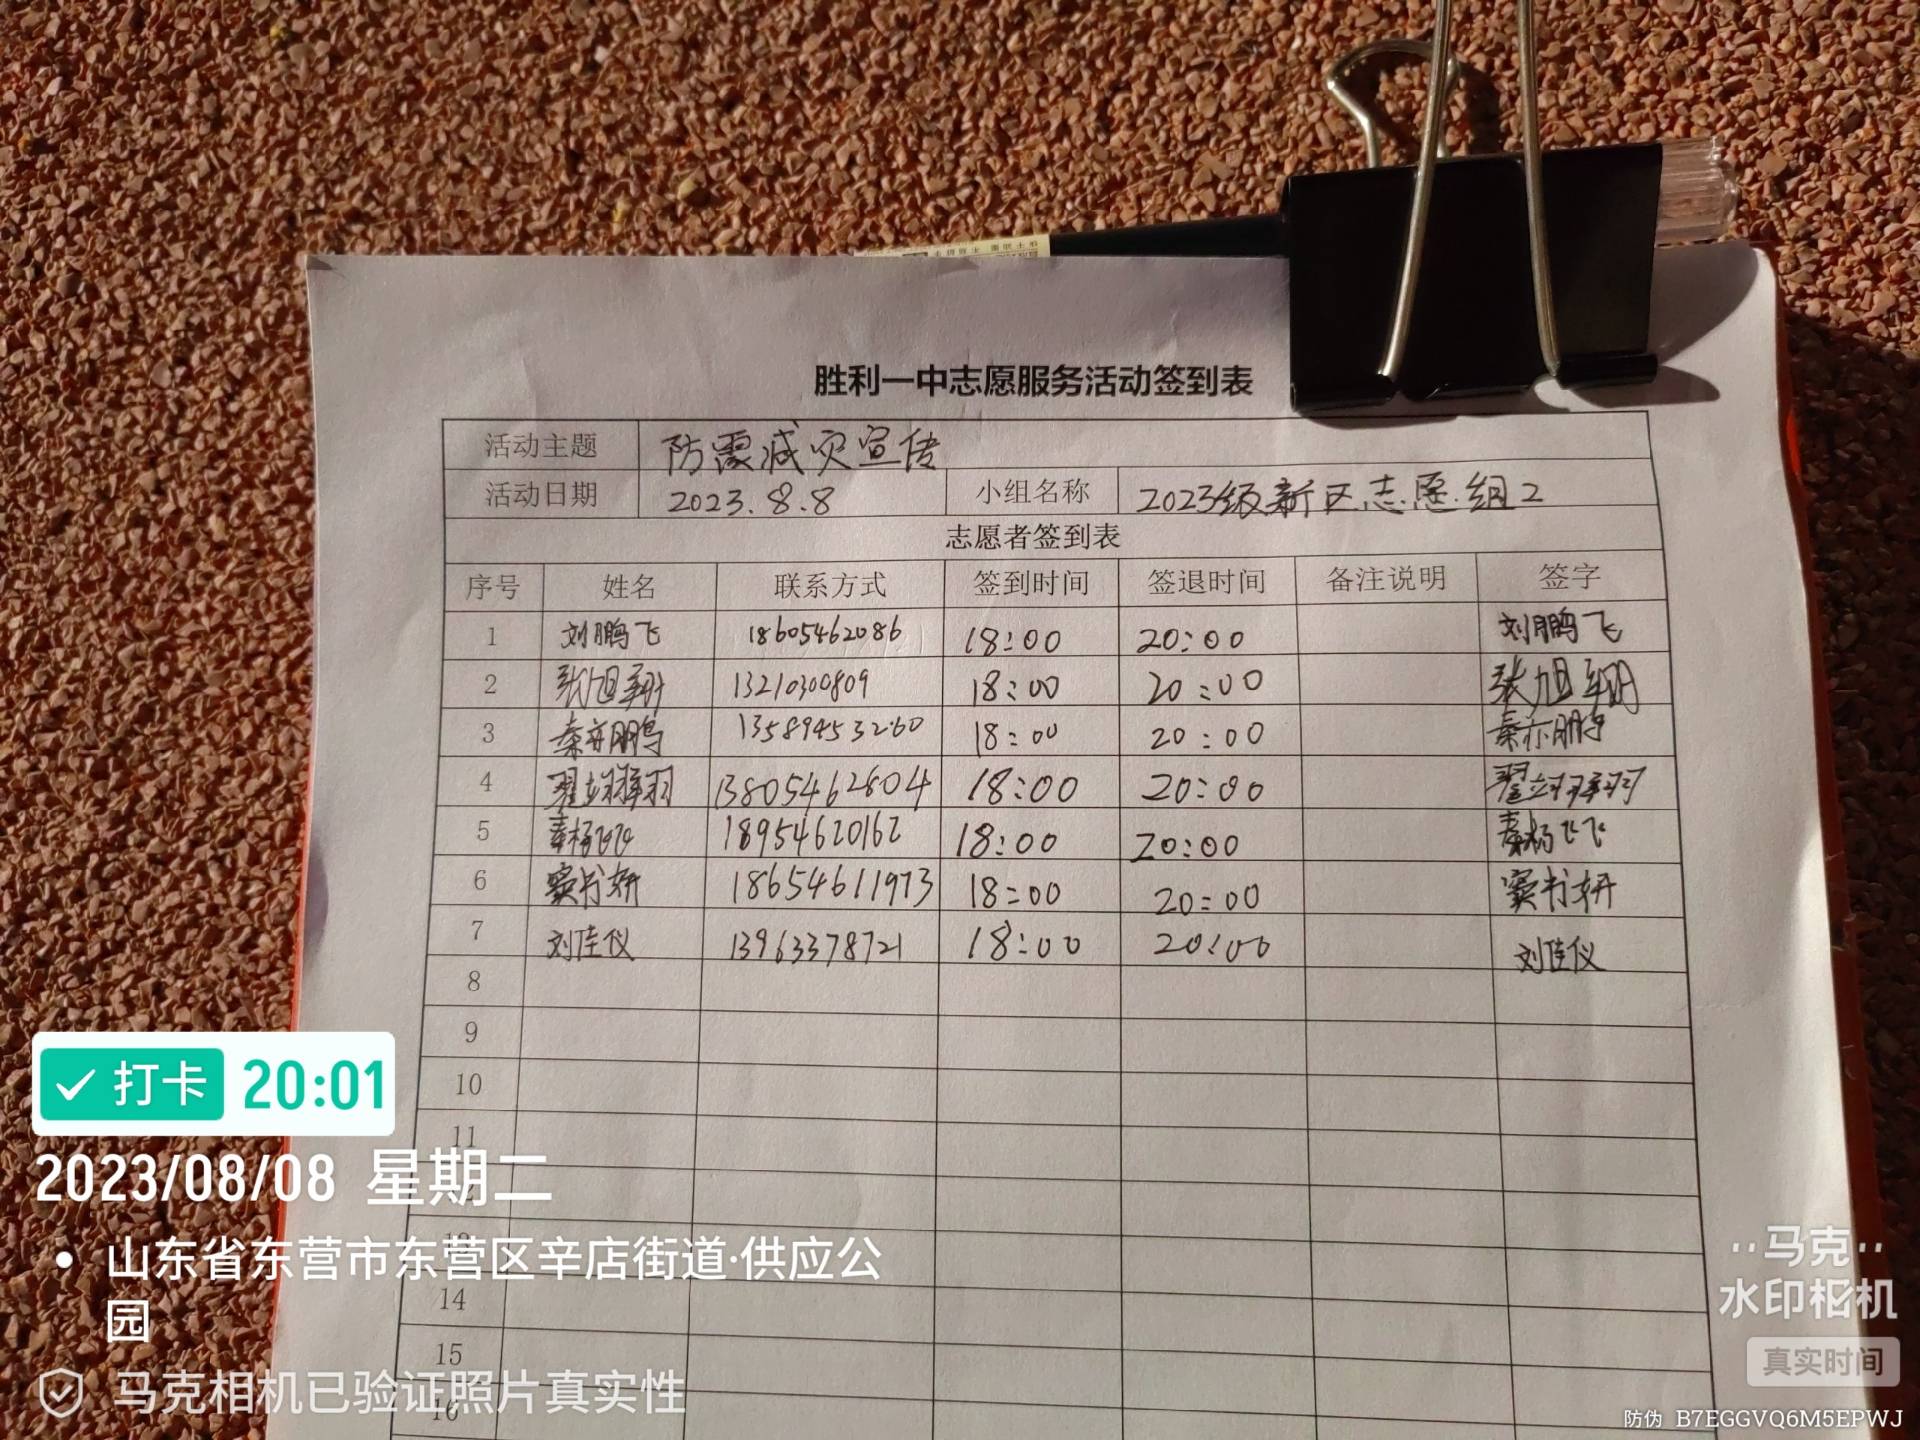 胜利一中志愿服务活动签到表
活动主题 防震减灾宣传
活动日期 2023.8.8 小组名称 2023级新区志愿组2
志愿者签到表
序号 姓名 联系方式 签到时间 签退时间 备注说明 签字
1 刘鹏飞 18605462086 18:00 20:00 刘鹏飞
2 张旭翔 13210300809 18:00 20:00 张旭翔
3 秦亦鹏 13589453260 18:00 20:00 秦亦鹏
4 13805462804 18:00 20:00
5 秦杨飞飞 18954620162 18:00 20:00 秦杨飞飞
6 窦书妍 18654611973 18:00 20:00 窦书妍
7 刘佳仪 13963378721 18:00 20:00 刘佳仪
8
9
10
11
14
15
16
打卡 20:01
2023/08/08 星期二
山东省东营市东营区辛店街道·供应公
园
马克相机已验证照片真实性
马克
水印相机
真实时间
防伪 B7EGGVQ6M5EPWJ